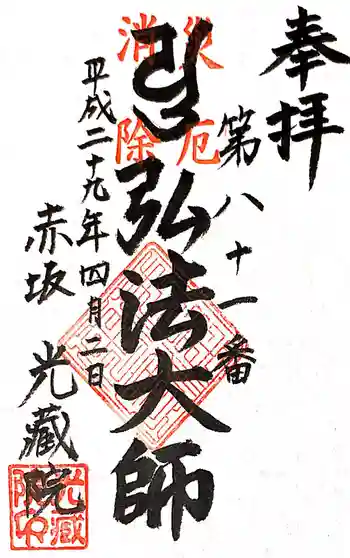 奉拝
第八十一番
災厄
消除
弘法大師
平成二十九年四月二日
赤坂
光蔵院